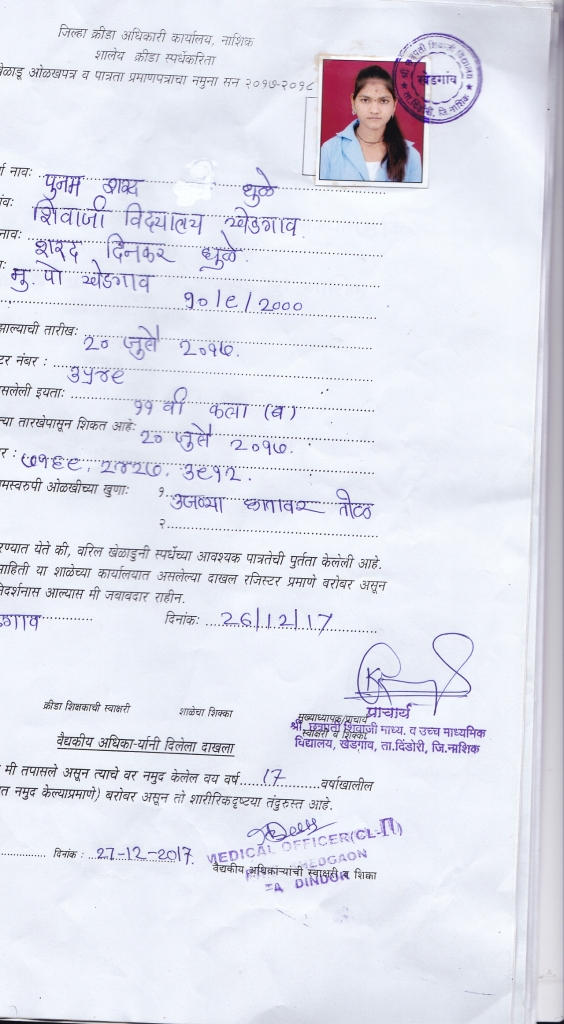 जिल्हा क्रीडा अधिकारी कार्यालय, नाशिक
शालेय क्रीडा स्पर्धेकरिता
खेळाडू ओळखपत्र व पात्रता प्रमाणपत्राचा नमुना सन २०१७-२०१८
श्री छत्रपती शिवाजी विद्यालय
खेडगांव
ता. दिंडोरी, जि. नाशिक
नाव: पुनम शरद धुळे
शिवाजी विद्यालय खेडगाव
नाव: शरद दिनकर धुळे.
मु. पो खेडगाव
१०/९/2000
झाल्याची तारीख: २० जुलै २०१७.
टर नंबर: ३५४९
सलेली इयता: ११ वी कला (ब)
च्या तारखेपासून शिकत आहे: २० जुलै २०१७.
र: ७१६९. २४२७. ३९१२.
मस्वरुपी ओळखीच्या खुणा: १. उजव्या हातावर तीळ
२.
रण्यात येते की, वरिल खेळाडुनी स्पर्धेच्या आवश्यक पात्रतेची पुर्तता केलेली आहे.
माहिती या शाळेच्या कार्यालयात असलेल्या दाखल रजिस्टर प्रमाणे बरोबर असून
निदर्शनास आल्यास मी जवाबदार राहीन.
डगाव दिनांक: 26/12/17
क्रीडा शिक्षकाची स्वाक्षरी शाळेचा शिक्का मुख्याध्यापक/प्राचार्य
स्वाक्षरी व शिक्का
प्राचार्य
श्री छत्रपती शिवाजी माध्य. व उच्च माध्यमिक
विद्यालय, खेडगांव, ता.दिंडोरी, जि.नाशिक
वैद्यकीय अधिका-यांनी दिलेला दाखला
मी तपासले असून त्याचे वर नमुद केलेल वय वर्ष 17 वर्षाखालील
त नमुद केल्याप्रमाणे) बरोबर असून तो शारीरिकदृष्टया तंदुरुस्त आहे.
MEDICAL OFFICER (CL-II)
KHEDGAON
TA DINDORI
दिनांक: 27-12-2017.
वैद्यकीय अधिकाऱ्यांची स्वाक्षरी व शिक्का